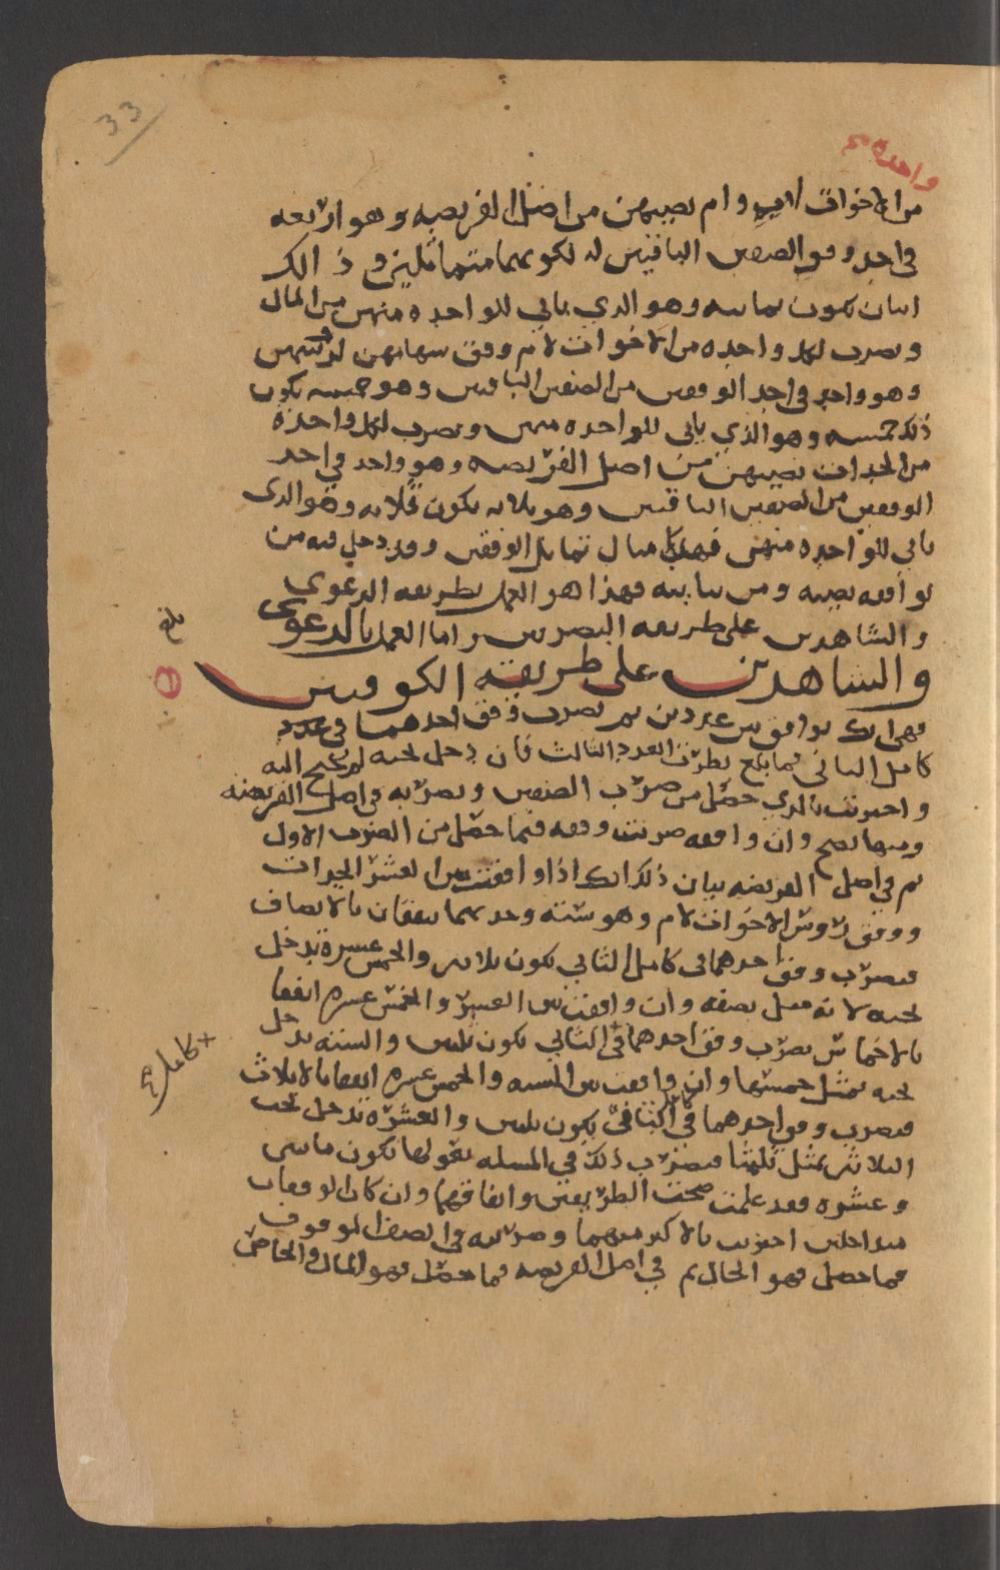 33
واحده
من الاخوات لاب وام نصيبهن من اصل الفريضه وهو اربعه
في احد وفق الصنفين الباقيين لكونهما متماثلين وذالك
اثنان يكون ثمانيه وهو الذي ياتي للواحده منهن من المال
ويضرب لكل واحده من الاخوات لام وفق سهامهن لروسهن
وهو واحد في احد الوفقين من الصنفين الباقيين وهو خمسه يكون
ذلك خمسه وهو الذي ياتي للواحده منهن ويضرب لكل واحدة
من الجدات نصيبهن من اصل الفريضه وهو واحد في احد
الوفقين من الصنفين الباقيين وهو ثلاثه يكون ثلاثه وهو الذي
ياتي للواحده منهن فهذا مثال تماثل الوفقين وقد دخل فيه من
توافقه نصيبه ومن يباينه فهذا هو العمل بطريقه الدعوى
والشاهدين على طريقه البصريين واما العمل بالدعوى
بلغ
والشاهدين على طريقة الكوفيين
فهي انك توافق بين عددين ثم تضرب وفق احدهما في عدد
كامل الثاني فما بلغ نظرت العدد الثالث فان دخل تحته لم تحتج اليه
واجتزيت بالذي حصل من ضرب الصنفين وتضربه في اصل الفريضه
ومنها تصح وان وافقه ضربت وفقه فيما حصل من الضرب الاول
ثم في اصل الفريضه بيان ذلك انك اذا وافقت بين العشر الجدات
ووفق رؤوس الاخوات لام وهو سته وجدتهما يتفقان بالانصاف
فتضرب وفق احدهما في كامل الثاني يكون ثلاثين والخمس عشرة تدخل
تحته لانه مثل نصفه وان وافقت بين العشر والخمس عشره اتفقا
بالاخماس تضرب وفق احدهما في الثاني يكون ثلاثين والسته تدخل
كامل
تحته بمثل خمسها وان وافقت بين السته والخمس عشره اتفقا بالاثلاث
فتضرب وفق احدهما في الثاني يكون ثلاثين والعشرة تدخل تحت
الثلاثين بمثل ثلثها فتضرب ذلك في المسله بعولها تكون مائتين
وعشره فقد علمت صحت الطريقين واتفاقهما وان كان الوفقان
متداخلين اجتزيت بالاكبر منهما وضربته في الصنف الموقوف
فما حصل فهو الحال ثم في اصل الفريضه فما حصل فهو المال والخاص